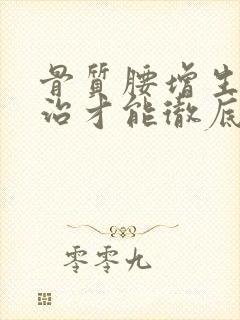 骨質腰增生
治才能徹底
零零九